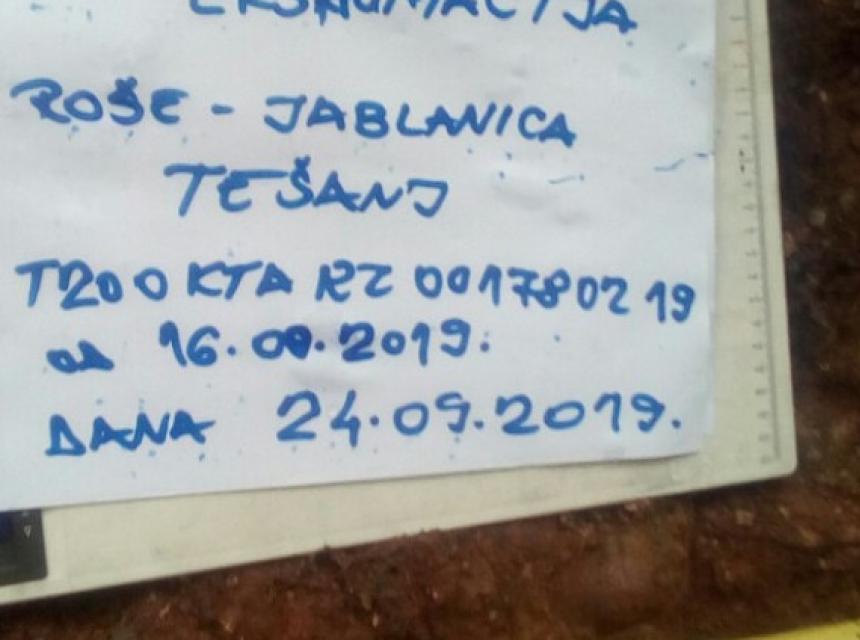 EKSHUMACIJA
ROŠE - JABLANICA
TEŠANJ
T200 KTA RZ 0017802 19
od 16.09.2019.
DANA 24.09.2019.